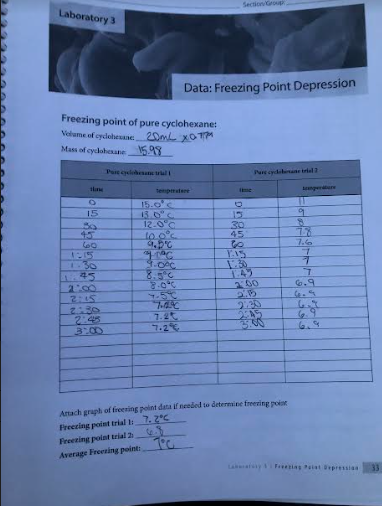 Section/Group:
Laboratory 3
Data: Freezing Point Depression
Freezing point of pure cyclohexane:
Volume of cyclohexane: 20mL x 0.779
Mass of cyclohexane: 15.98
Pure cyclohexane trial 1 Pure cyclohexane trial 2
time temperature time temperature
0 15.0°C 0 11
15 13.0°C 15 9
30 12.0°C 30 8
45 10.0°C 45 7.8
60 9.5°C 60 7.6
1:15 9.1°C 1:15 7
1:30 9.0°C 1:30 7
1:45 8.5°C 1:45 7
2:00 8.0°C 2:00 6.9
2:15 7.5°C 2:15 6.9
2:30 7.2°C 2:30 6.9
2:45 7.2°C 2:45 6.9
3:00 7.2°C 3:00 6.9
Attach graph of freezing point data if needed to determine freezing point
Freezing point trial 1: 7.2°C
Freezing point trial 2: 6.8
Average Freezing point: 7°C
Laboratory 3 : Freezing Point Depression 33